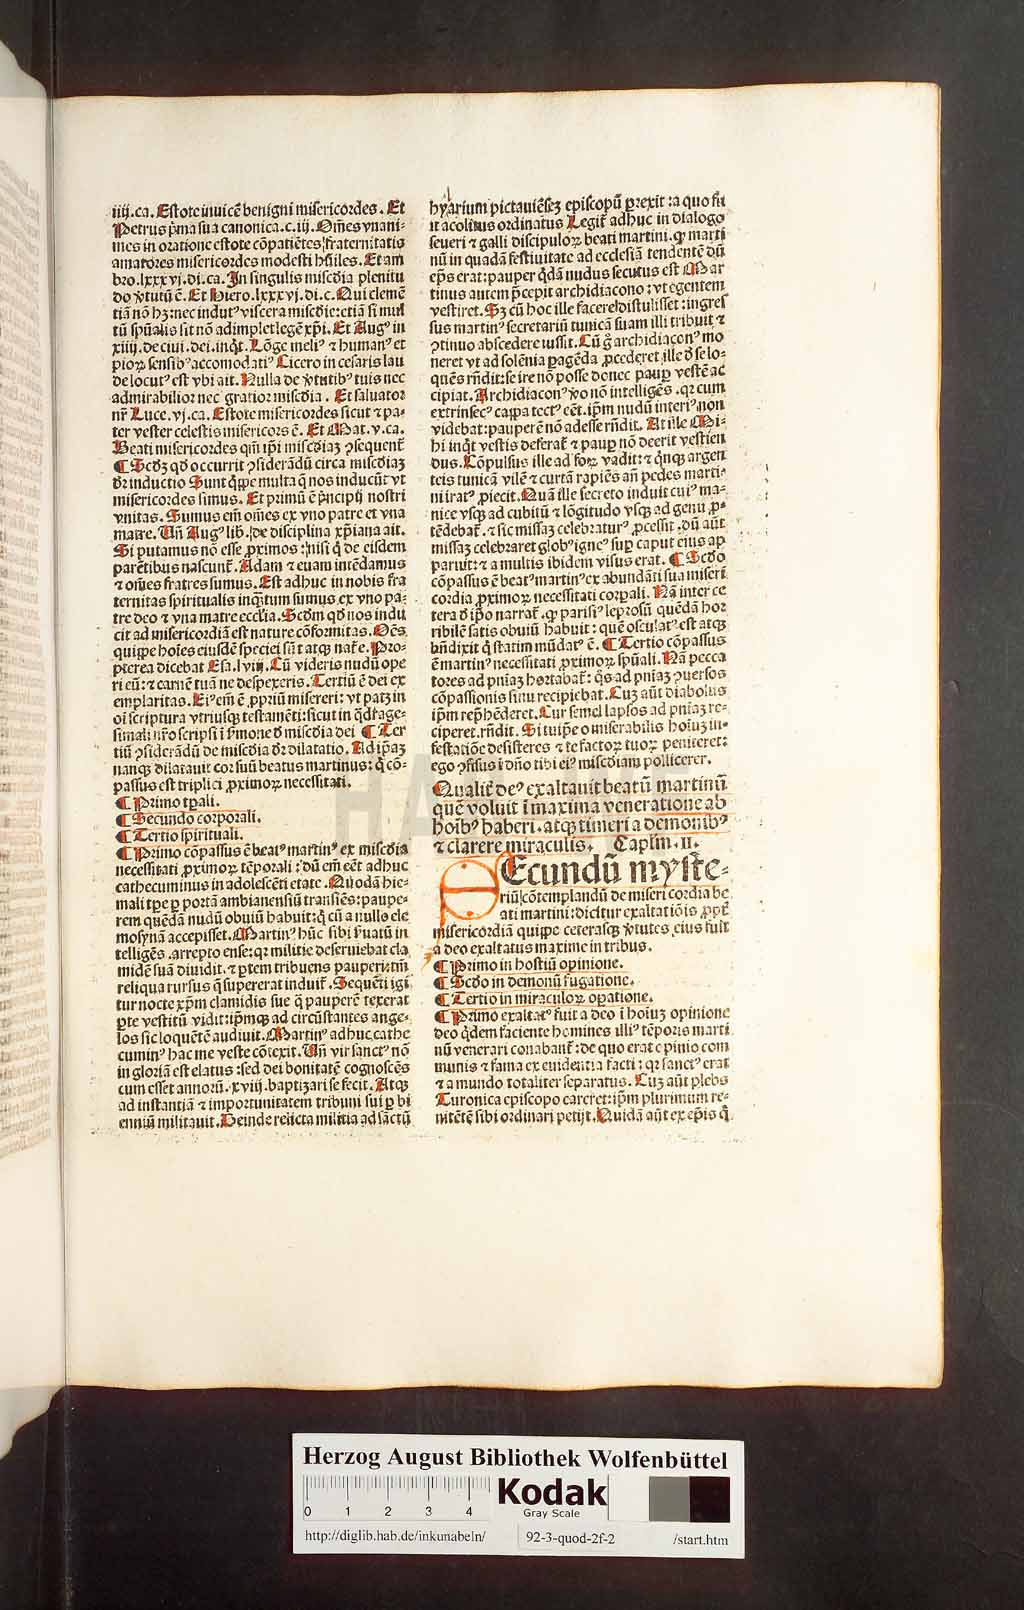 iiij.ca. Estote inuicē benigni misericordes. Et
Petrus p̄ma sua canonica.c.iij. Om̄es vnani-
mes in oratione estote cōpatiētes: fraternitatis
amatores misericordes modesti hūiles. Et am
bro.lxxxvj.di.ca. In singulis miscdia plenitu
do v̓tutū ē. Et Hiero.lxxxvj.di.c. Qui clemē
tiā nō hꝫ: nec indutꝰ viscera miscdie: etiā si mul
tū spūalis sit nō adimplet legē xp̄i. Et Augꝰ in
xiiij. de ciui. dei. inqt̓. Lōge meliꝰ ⁊ humanꝰ et
pioꝝ sensibꝰ accomodatiꝰ Cicero in cesaris lau
de locutꝰ est vbi ait. Nulla de v̓tutibꝰ tuis nec
admirabilior nec gratior miscdia. Et saluator
nr̄ Luce.vj.ca. Estote misericordes sicut ⁊ pa-
ter vester celestis misericors ē. Et Mat.v.ca.
Beati misericordes qm̄ ip̄i miscdiaꝫ ꝯsequent̓
¶ Scdꝫ qd̓ occurrit ꝯsiderādū circa miscdiaꝫ
dr̄ inductio Sunt qͥppe multa q̄ nos inducūt vt
misericordes simus. Et primū ē p̄ncipij nostri
vnitas. Sumus em̄ om̄es ex vno patre et vna
matre. Un̄ Augꝰ lib. de disciplina xp̄iana ait.
Si putamus nō esse ꝓximos: nisi qͥ de eisdem
parētibus nascunt̓. Adam ⁊ euam intēdamus
⁊ om̄es fratres sumus. Est adhuc in nobis fra
ternitas spiritualis inqͣtum sumus ex vno pa-
tre deo ⁊ vna matre eccl̓ia. Scdm̄ qd̓ nos indu
cit ad misericordiā est nature cōformitas. Oēs
quippe hoīes eiusdē speciei sūt atqꝫ nat̓e. Pro-
pterea dicebat Esa.lviij. Cū videris nudū ope
ri eū: ⁊ carnē tuā ne despexeris. Tertiū ē dei ex
emplaritas. Eiꝰ em̄ ē ꝓpriū misereri: vt patꝫ in
oī scriptura vtriusqꝫ testamēti: sicut in qͣdrage-
simali nr̄o scripsi ī ẜmone d̓ miscdia dei ¶ Ter
tiū ꝯsiderādū de miscdia dr̄ dilatatio. Ad ip̄aꝫ
nanqꝫ dilatauit cor suū beatus martinus: qͥ cō-
passus est triplici ꝓximoꝝ necessitati.
¶ Primo tꝑali.
¶ Secundo corporali.
¶ Tertio spirituali.
¶ Primo cōpassus ē beatꝰ martinꝰ ex miscdia
necessitati ꝓximoꝝ tēporali: dū em̄ eēt adhuc
cathecuminus in adolescēti etate. Quodā hie-
mali tꝑe ꝑ portā ambianensiū transiēs: paupe-
rem quēdā nudū obuiū habuit: qͥ cū a nullo ele
mosynā accepisset. Martinꝰ hūc sibi ẜuatū in
telligēs. arrepto ense: q̄ militie deseruiebat cla
midē suā diuidit. ⁊ ꝑtem tribuens pauperi: tm̄
reliqua rursus q̄ supererat induit̓. Sequēti igi
tur nocte xp̄m clamidis sue q̄ pauperē texerat
ꝑte vestitū vidit: ip̄mqꝫ ad circūstantes ange-
los sic loquētē audiuit. Martinꝰ adhuc cathe
cuminꝰ hac me veste cōtexit. Un̄ vir sanctꝰ nō
in gloriā est elatus: sed dei bonitatē cognoscēs
cum esset annorū .xviij. baptizari se fecit. Atqꝫ
ad instantiā ⁊ importunitatem tribuni sui ꝑ bi
ennium militauit. Deinde reiicta militia ad sāctū
hylarium pictauiēseꝫ episcopū ꝑrexit: a quo fu
it acolitus ordinatus Legit̓ adhuc in dialogo
seueri ⁊ galli discipuloꝝ beati martini. qꝙ marti
nū in quadā festiuitate ad ecclesiā tendentē dū
ep̄s erat: pauper qͥdā nudus secutus est Mar
tinus autem p̄cepit archidiacono: vt egentem
vestiret. Sꝫ cū hoc ille facere distulisset: ingres
sus martinꝰ secretariū tunicā suam illi tribuit ⁊
ꝯtinuo abscedere iussit. Cū g̊ archidiaconꝰ mo
neret vt ad solēnia ꝑagēda ꝓcederet ille d̓ se lo-
quēs rn̄dit: se ire nō posse donec pauꝑ vestē ac
cipiat. Archidiaconꝰ v̓o nō intelligēs. qꝛ cum
extrinsecꝰ cappa tectꝰ eēt. ip̄m nudū interiꝰ non
videbat: pauperē nō adesse rn̄dit. At ille Mi-
hi inqt̓ vestis deferat̓ ⁊ pauꝑ nō deerit vestien
dus. Cōpulsus ille ad foꝝ vadit: ⁊ qͥnqꝫ argen
teis tunicā vilē ⁊ curtā rapiēs an̄ pedes marti-
ni iratꝰ ꝓiecit. Quā ille secreto induit cuiꝰ ma-
nice vsqꝫ ad cubitū ⁊ lōgitudo vsqꝫ ad genu ꝓ-
tēdebat̓. ⁊ sic missaꝫ celebraturꝰ ꝓcessit. dū aūt
missaꝫ celebraret globꝰ igneꝰ suꝑ caput eius ap
paruit: ⁊ a multis ibidem visus erat. ¶ Scdo
cōpassus ē beatꝰ martinꝰ ex abundāti sua miseri
cordia ꝓximoꝝ necessitati corꝑali. Nā inter ce
tera d̓ ip̄o narrat̓. qꝙ parisiꝰ leprosū quēdā hor
ribilē satis obuiū habuit: quē osculatꝰ est atqꝫ
bn̄dixit qͥ statim mūdatꝰ ē. ¶ Tertio cōpassus
ē martinꝰ necessitati ꝓximoꝝ spūali. Nā pecca
tores ad pn̄iaꝫ hortabat̓: qͦs ad pn̄iaꝫ ꝯuersos
cōpassionis sinu recipiebat. Cuꝫ aūt diabolus
ip̄m rep̄hēderet. Cur semel lapsos ad pn̄iaꝫ re-
ciperet. rn̄dit. Si tuip̄e o miserabilis hoīuꝫ in-
festatiōe desisteres ⁊ te factoꝝ tuoꝝ peniteret:
ego ꝯfisus ī dn̄o tibi eiꝰ miscdiam pollicerer.
Qualit̓ deꝰ exaltauit beatū martinū
quē voluit ī maxima veneratione ab
hoībꝰ haberi. atqꝫ timeri a demonibꝰ
⁊ clarere miraculis. Caplm̄.ii.
Ecundū myste-
riū cōtemplandū de misericordia be
ati martini: dicitur exaltatiōis ꝓpt̓
misericordiā quippe ceterasqꝫ v̓tutes eius fuit
a deo exaltatus maxime in tribus.
¶ Primo in hoīuꝫ opinione.
¶ Scdo in demonū fugatione.
¶ Tertio in miraculoꝝ oꝑatione.
¶ Primo exaltatꝰ fuit a deo ī hoīuꝫ opinione
deo qͥdem faciente homines illiꝰ tēporis marti
nū venerari conabant̓: de quo erat opinio com
munis ⁊ fama ex euidentia facti: qꝛ sanctꝰ erat
⁊ a mundo totaliter separatus. Cuꝫ aūt plebs
Turonica episcopo careret: ip̄m plurimum re-
nitētē sibi ordinari petijt. Quidā aūt ex ep̄is qͥ
HAB WF
Herzog August Bibliothek Wolfenbüttel
0 1 2 3 4
Kodak
Gray Scale
http://diglib.hab.de/inkunabeln/ 92-3-quod-2f-2 /start.htm